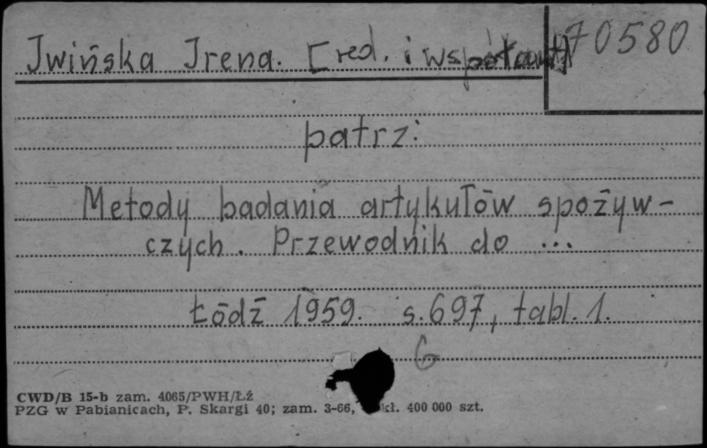 Jwińska Jrena. [red. i współaut.]
70580
patrz:
Metody badania artykułów spożyw-
czych. Przewodnik do ...
Łódź 1959. s.697, tabl. 1.
G
CWD/B 15-b zam. 4065/PWH/Łź
PZG w Pabianicach, P. Skargi 40; zam. 3-66, kł. 400 000 szt.